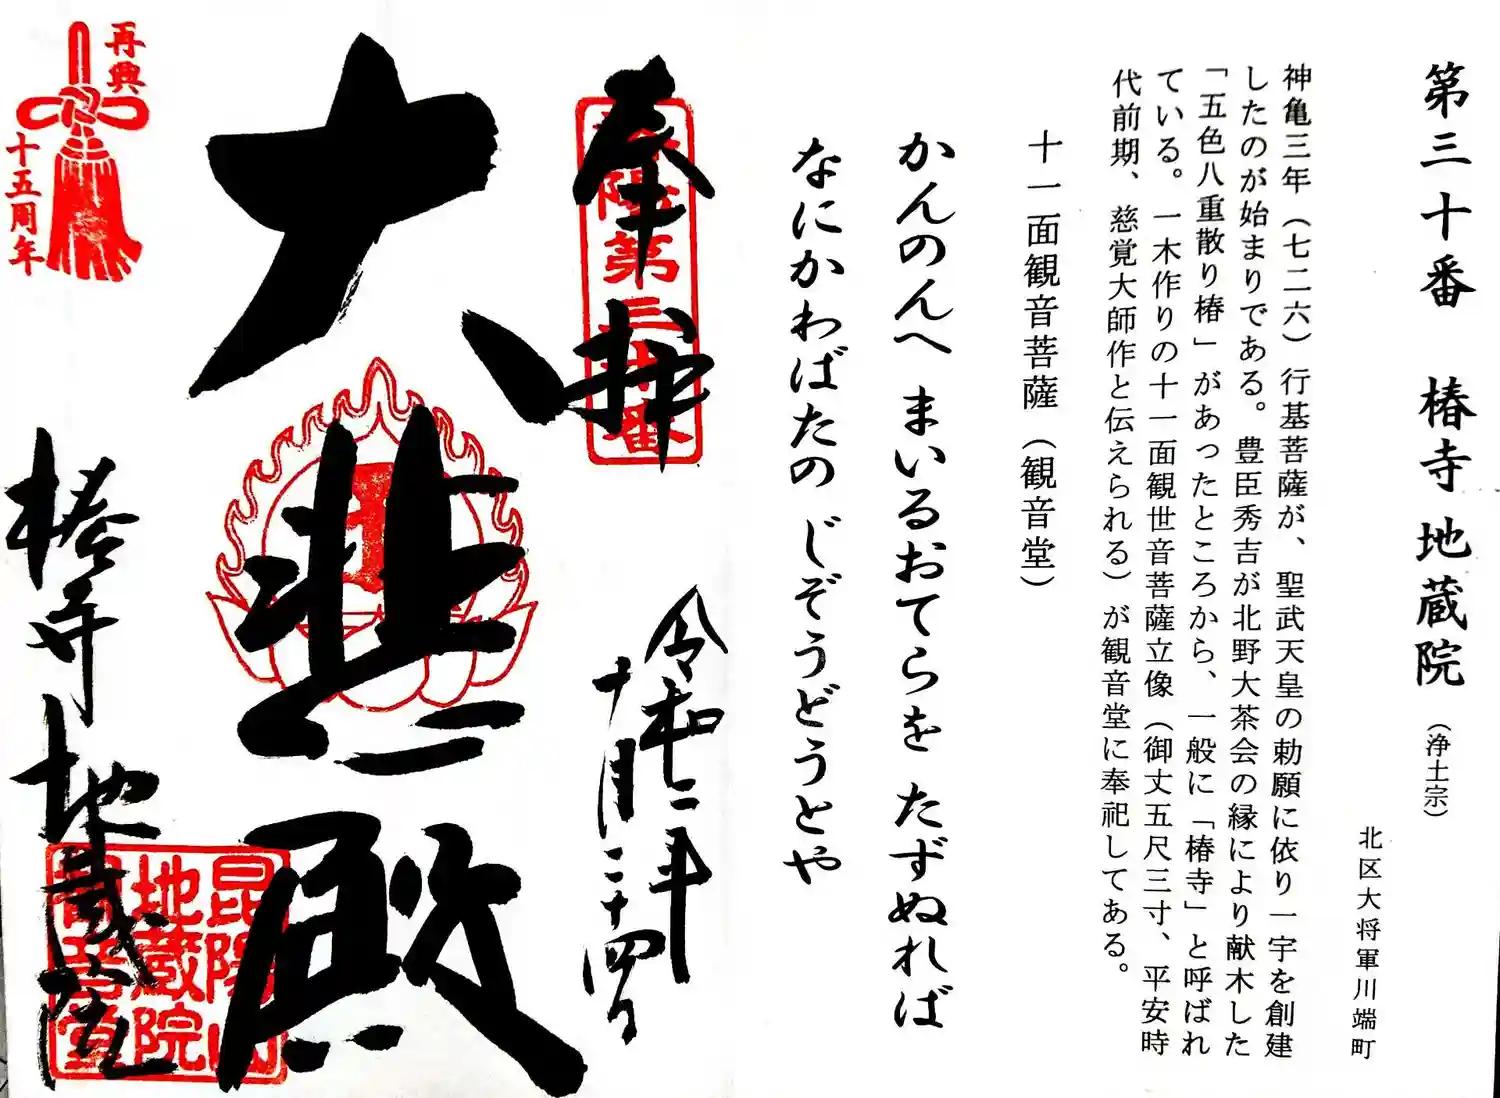 第三十番 椿寺 地蔵院 (浄土宗)
北区大将軍川端町
神亀三年(七二六)行基菩薩が、聖武天皇の勅願に依り一宇を創建
したのが始まりである。豊臣秀吉が北野大茶会の縁により献木した
「五色八重散り椿」があったところから、一般に「椿寺」と呼ばれ
ている。一木作りの十一面観世音菩薩立像(御丈五尺三寸、平安時
代前期、慈覚大師作と伝えられる)が観音堂に奉祀してある。
十一面観音菩薩(観音堂)
かんのんへ まいるおてらを たずぬれば
なにかわばたの じぞうどうとや
奉拝
洛陽第三十番
令和二年
十月二十四日
大悲殿
椿寺地蔵院
昆陽山
地蔵院
観音堂
再興
十五周年